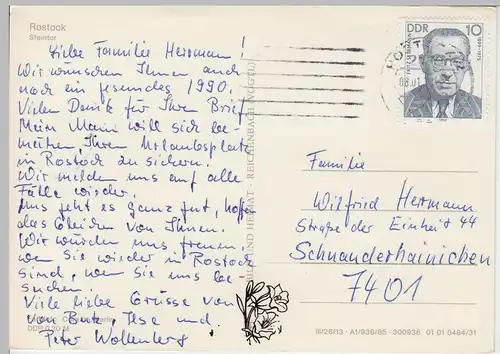 Rostock
Steintor
Liebe Familie Herrmann!
Wir wünschen Ihnen auch
noch ein gesundes 1990.
Vielen Dank für Ihren Brief
Mein Mann will sich be-
mühen, Ihren Urlaubsplatz
in Rostock zu sichern.
Wir melden uns auf alle
Fälle wieder.
Uns geht es ganz gut, hoffe
das Gleiche von Ihnen.
Wir würden uns freuen,
wenn Sie wieder in Rostock
sind, wenn Sie uns be-
suchen.
Viele liebe Grüsse von
von Ilse und
Peter Wollenberg
DDR 0,20 M
BILD UND HEIMAT - REICHENBACH (VOGTL)
DDR 10
Familie
Wilfried Herrmann
Straße der Einheit 44
Schnanderhainichen
7401
III/26/13 · A1/936/85 · 300936 01 01 0484/31